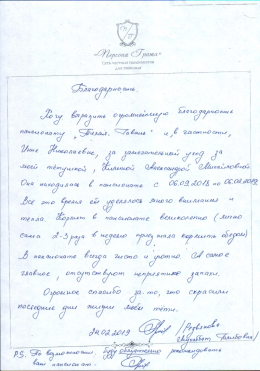 Благодарность.
Хочу выразить огромнейшую благодарность
пансионату и, в частности,
Инне Николаевне, за замечательный уход за
моей тётушкой, Александрой Михайловной.
Она находилась в пансионате с 06.09.2018 по 06.02.2019.
Всё это время ей уделялось много внимания и
тепла. Кормят в пансионате великолепно (лично
сама 2-3 раза в неделю приезжала кормить обедом)
В пансионате всегда чисто и уютно. А самое
главное, отсутствуют неприятные запахи.
Огромное спасибо за то, что скрасили
последние дни жизни моей тёти.
24.02.2019
P.S. По возможности, буду обязательно рекомендовать
ваш пансионат.